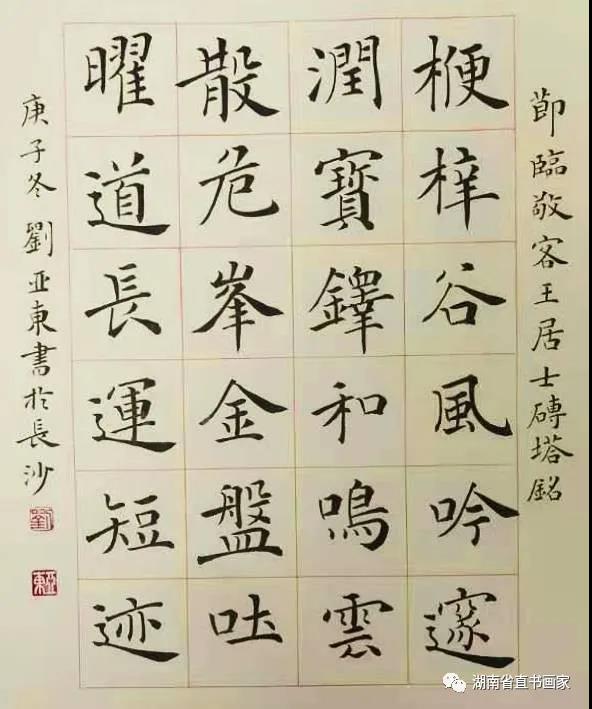 節臨敬客王居士磚塔銘
楩梓谷風吟邃
潤寶鐸和鳴雲
散危峯金盤吐
曜道長運短迹
庚子冬劉亞東書於長沙
劉
亞東
湖南省直书画家